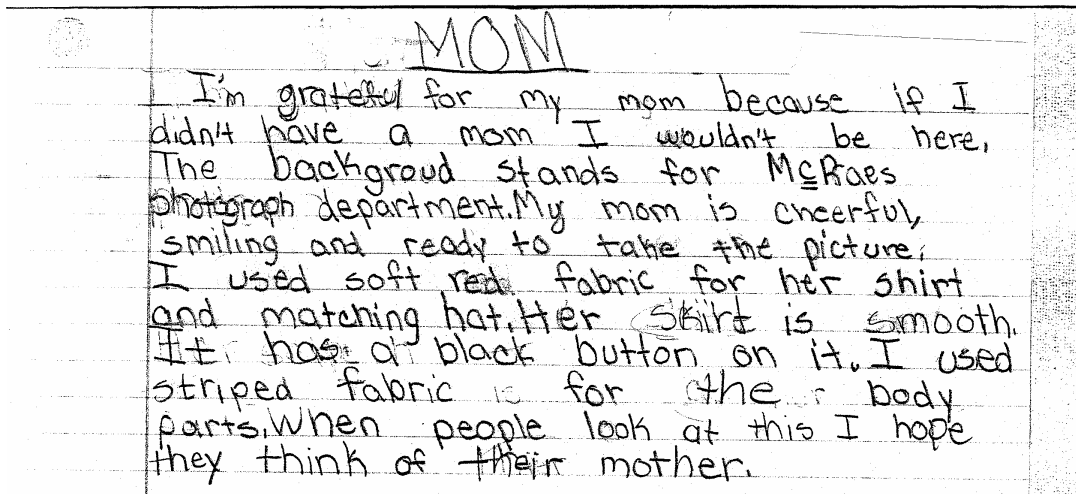 MOM
I'm grateful for my mom because if I
didn't have a mom I wouldn't be here.
The backgroud stands for McRaes
photograph department. My mom is cheerful,
smiling and ready to take the picture.
I used soft red fabric for her shirt
and matching hat. Her skirt is smooth.
It has a black button on it. I used
striped fabric for the body
parts. When people look at this I hope
they think of their mother.